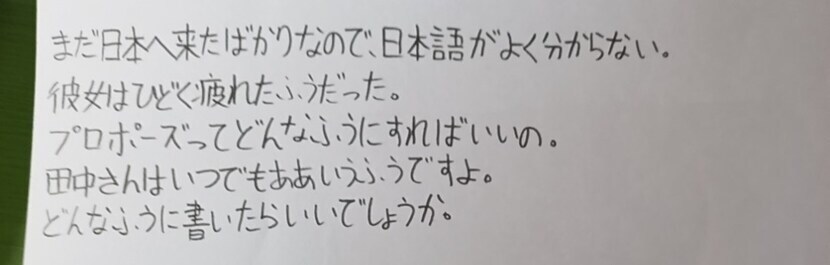 まだ日本へ来たばかりなので、日本語がよく分からない。
彼女はひどく疲れたふうだった。
プロポーズってどんなふうにすればいいの。
田中さんはいつでもああいえふうですよ。
どんなふうに書いたらいいでしょうか。